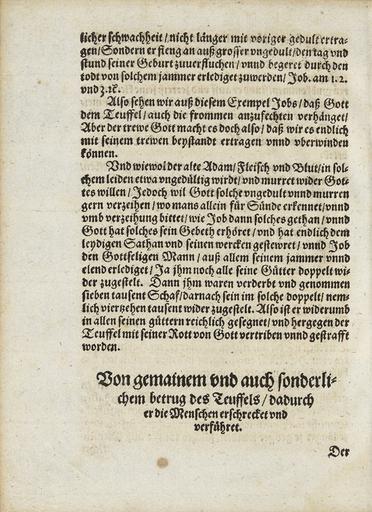 licher schwachheit / nicht länger mit voriger gedult ertra-
gen / Sondern er fieng an auß grosser vngedult / den tag vnd
stund seiner Geburt zuuerfluchen / vnnd begeret durch den
todt von solchem jammer erlediget zuwerden / Job. am 1. 2.
vnd 3. ꝛc.
Also sehen wir auß diesem Exempel Jobs / daß Gott
dem Teuffel / auch die frommen anzufechten verhänget /
Aber der trewe Gott macht es doch also / daß wir es endlich
mit seinem trewen beystandt ertragen vnnd vberwinden
können.
Vnd wiewol der alte Adam / Fleisch vnd Blut / in sol-
chem leiden etwa vngedültig wirdt / vnd murret wider Got-
tes willen / Jedoch wil Gott solche vngedult vnnd murren
gern verzeihen / wo mans allein für Sünde erkennet / vnnd
vmb verzeihung bittet / wie Job dann solches gethan / vnnd
Gott hat solches sein Gebeth erhöret / vnd hat endlich dem
leydigen Sathan vnd seinen wercken gestewret / vnnd Job
den Gottseligen Mann / auß allem seinem jammer vnnd
elend erlediget / Ja jhm noch alle seine Gütter doppelt wi-
der zugestelt. Dann jhm waren verderbt vnd genommen
sieben tausent Schaf / darnach sein im solche doppelt / nem-
lich viertzehen tausent wider zugestelt. Also ist er widerumb
in allen seinen güttern reichlich gesegnet / vnd hergegen der
Teuffel mit seiner Rott von Gott vertriben vnnd gestrafft
worden.
Von gemainem vnd auch sonderli-
chem betrug des Teuffels / dadurch
er die Menschen erschrecket vnd
verführet.
Der